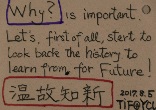 Why? is important.
Let's, first of all, start to
look back the history to
learn from, for Future!
温故知新
2017.8.5
TIFOYCU